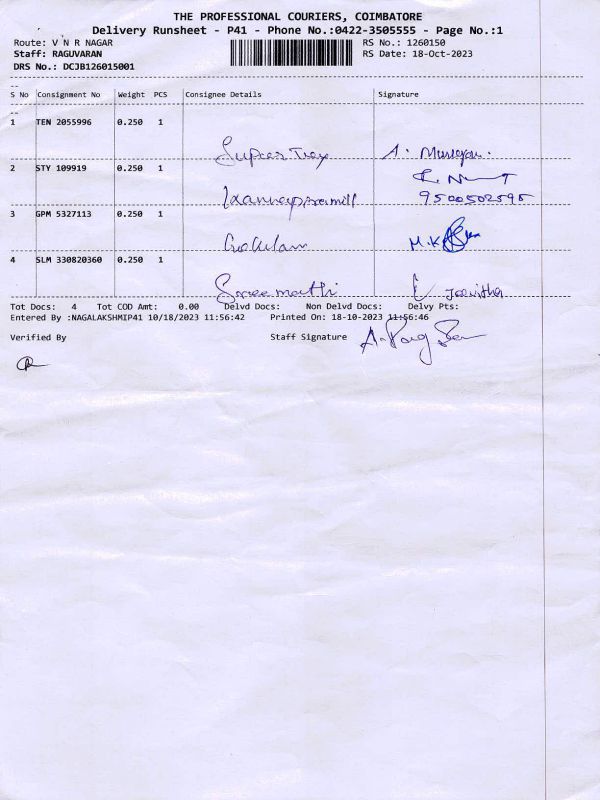 THE PROFESSIONAL COURIERS, COIMBATORE
Delivery Runsheet - P41 - Phone No.:0422-3505555 - Page No.:1
Route: V N R NAGAR RS No.: 1260150
Staff: RAGUVARAN RS Date: 18-Oct-2023
DRS No.: DCJB126015001
S No Consignment No Weight PCS Consignee Details Signature
1 TEN 2055996 0.250 1
A. Murugan.
2 STY 109919 0.250 1
9500502595
3 GPM 5327113 0.250 1
Gokulam M.K
4 SLM 330820360 0.250 1
Sreemathi
Tot Docs: 4 Tot COD Amt: 0.00 Delvd Docs: Non Delvd Docs: Delvy Pts:
Entered By :NAGALAKSHMIP41 10/18/2023 11:56:42 Printed On: 18-10-2023 11:56:46
Verified By Staff Signature